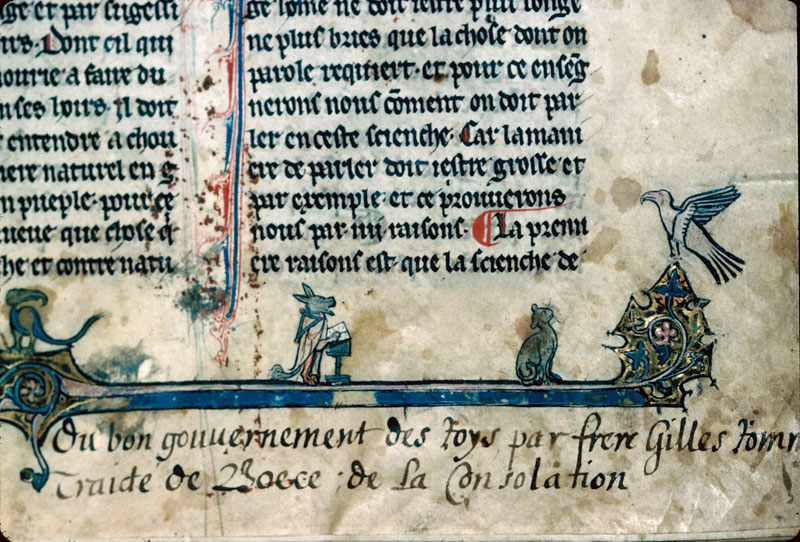 ge et par sugessi
irs. Dont cil qui
nourie a faire du
n ses hoirs. il doit
entendre a chou
nere naturel en g
n pueple. pour ce
ueue que chose q̄
he et contre natu
ge lome ne doit iestre plus longe
ne plus bries que la chose dont on
parole requiert. et pour ce enseḡ
nerons nous cōment on doit par
ler en ceste scienche. Car la mani
ere de parler doit iestre grosse et
par exemple. et ce prouuerons
nous par iiii raisons. La premi
ere raisons est que la scienche de
Du bon gouvernement des Roys par frere Gilles Rom
Traide de Boece de la Consolation